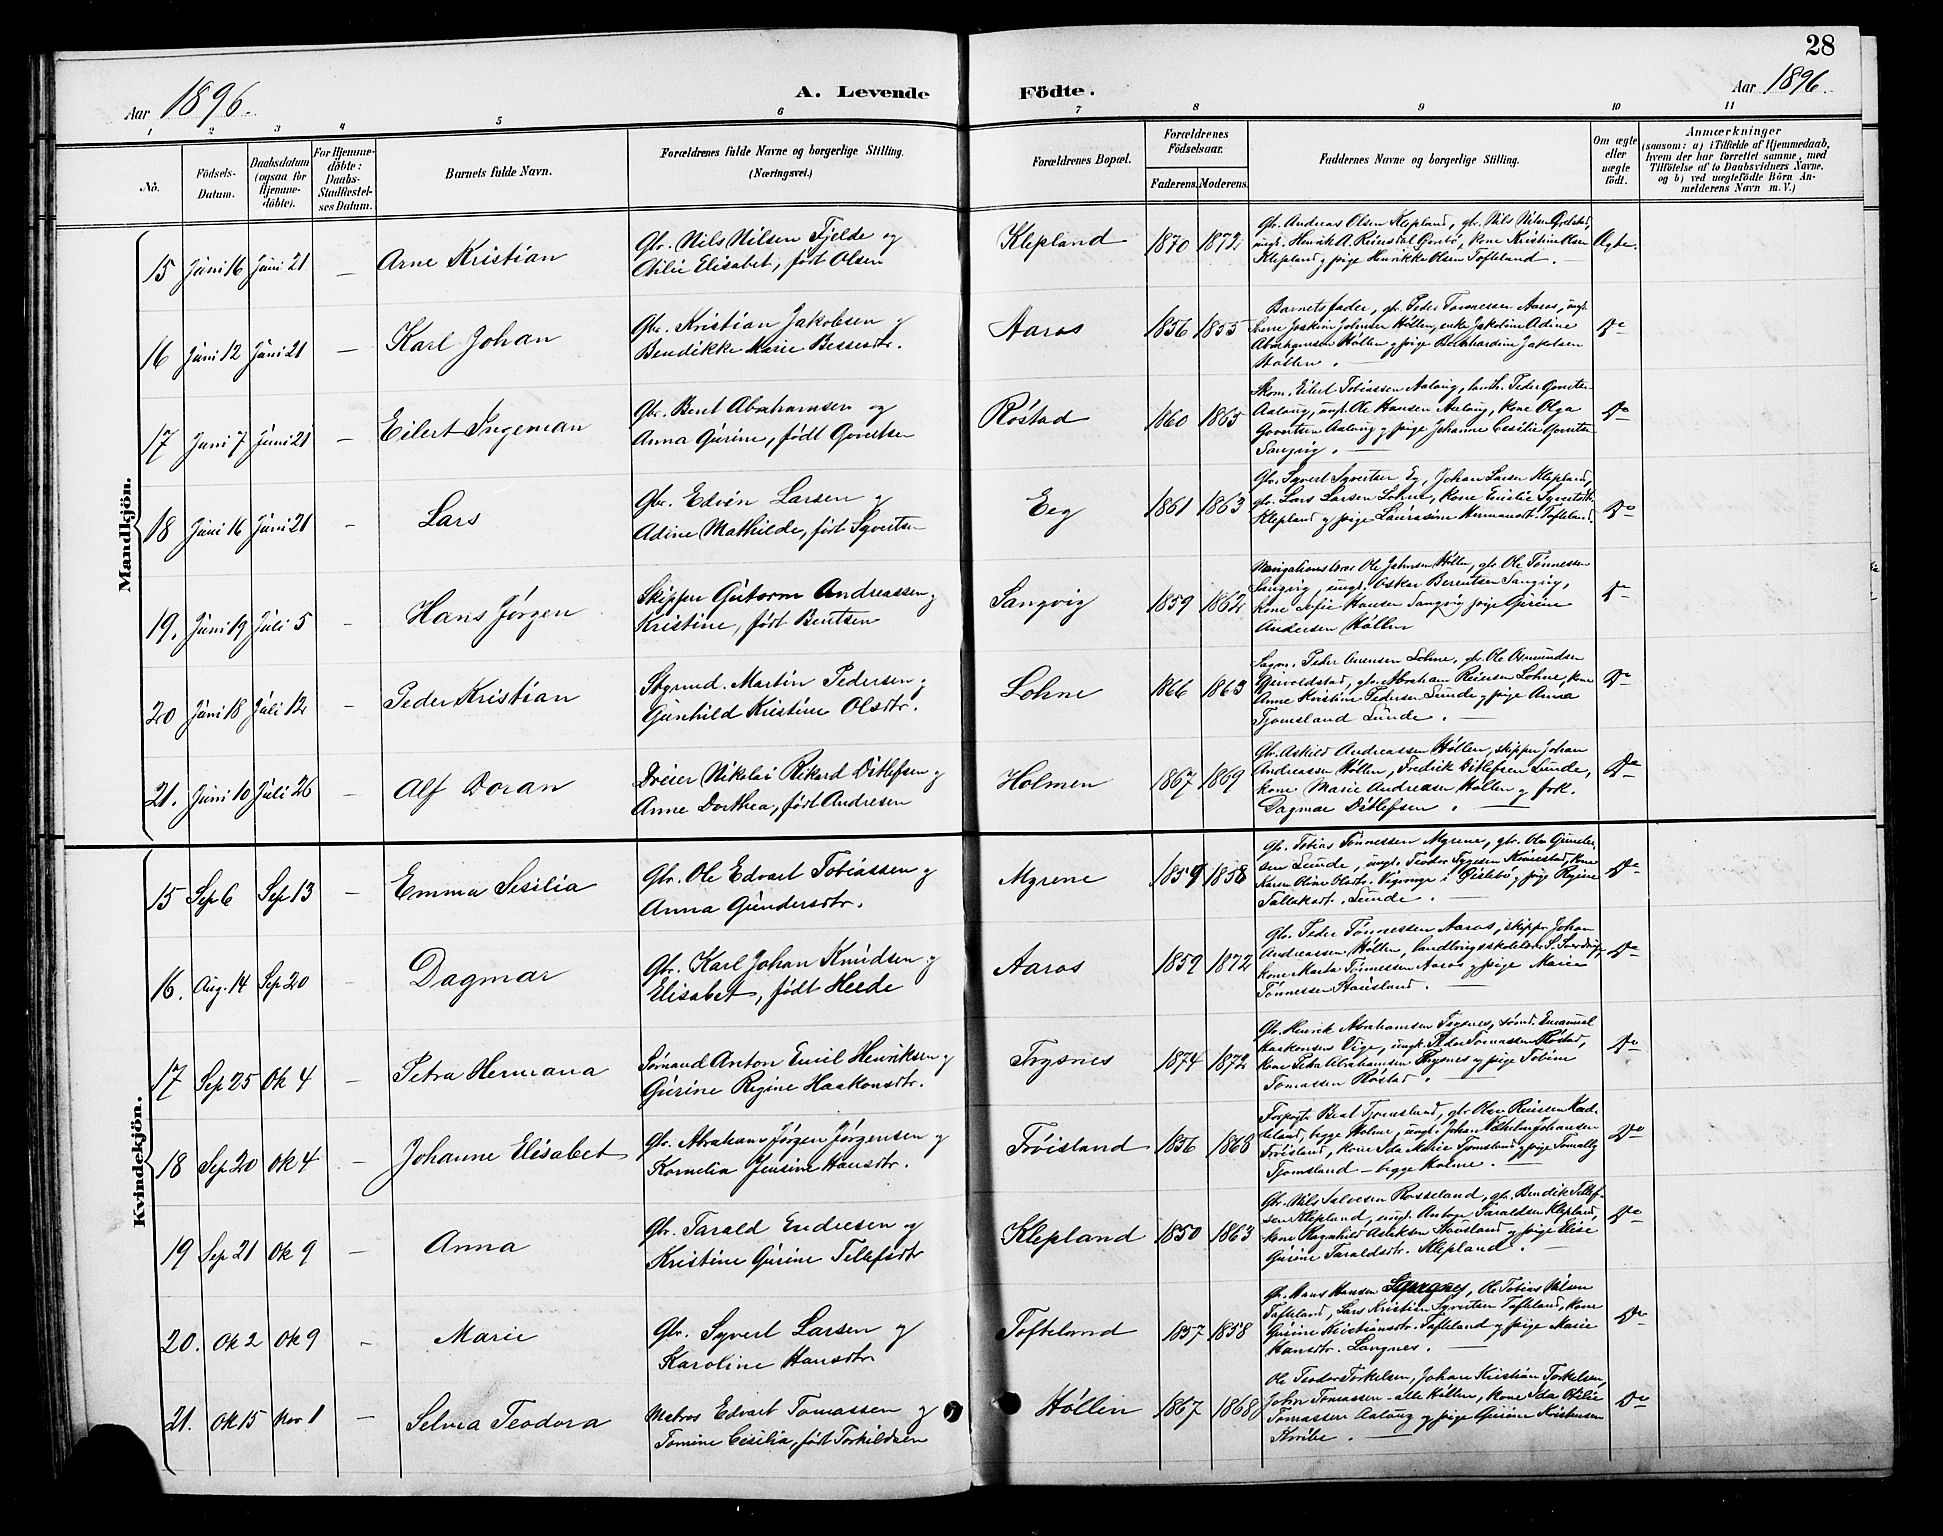 28
Aar 1896.
A. Levende Födte.
Aar 1896.
1 2 3 4 5 6 7 8 9 10 11
No.
Födsels-Datum.
Daabsdatum (ogsaa for Hjemmedöbte).
For Hjemmedöbte: Daabs-Stadfæstelses Datum.
Barnets fulde Navn.
Forældrenes fulde Navne og borgerlige Stilling. (Næringsvei.)
Forældrenes Bopæl.
Forældrenes Födselsaar.
Faderens. Moderens.
Faddernes Navne og borgerlige Stilling.
Om ægte eller uægte födt.
Anmærkninger (saasom: a) i Tilfælde af Hjemmedaab, hvem der har forrettet samme, med Tilföielse af to Daabsvidners Navne, og b) ved uægtefödte Börn Anmelderens Navn m. V.)
Mandkjön.
15 Juni 16 Juni 21 — Arne Kristian
Gbr. Nils Nilsen Fjelde og
Atilie Elisabet, født Olsen
Klepland 1870 1872
Gbr. Andreas Olsen Klepland, gbr. Nils Nilsen
ungk. Henrik A. Reinsdal, kone Kristine Olsen
Klepland og pige Henrikke Olsen Tofteland. —
Ægte.
16 Juni 12 Juni 21 — Karl Johan
Gbr. Kristian Jakobsen og
Bendikke Marie Bessesdtr.
Aaros 1856 1855
Barnets fader, gbr. Peder Tønnessen Aaros, ungk.
Joakim Johnsen Høllen, enke Jakobine Adine
Abrahamsen Høllen og pige Berhardine Jakobsen
Høllen.
Do
17 Juni 7 Juni 21 — Eilert Ingeman
Gbr. Bent Abrahamsen og
Anna Gurine, født Govertsen
Røstad 1860 1865
Skom. Eilert Tobiassen Aalaug, Peder Govertsen
Aalaug, ungk. Ole Hansen Aalaug, kone Olga
Govertsen Aalaug og pige Johanne Cesilie Govertsen
Sangvig. —
Do
18 Juni 16 Juni 21 — Lars
Gbr. Edvin Larsen og
Adine Mathilde, født Syvertsen
Eeg 1861 1863
Gbr. Syvert Syvertsen Eg, Johan Larsen Klepland,
gbr. Lars Larsen Lohne, kone Emilie Syvertsdtr.
Klepland og pige Laurasine Hermansdt. Tofteland.
Do
19. Juni 19 Juli 5 — Hans Jørgen
Skipper Gutorm Andreassen og
Kristine, født Bentsen
Sangvig 1859 1862
Navigationslærer Ole Johnsen Høllen, gbr. Ole Tønnessen
Sangvig, ungk. Oskar Berentsen Sangvig,
kone Sofie Hansen Sangvig pige Gurine
Andersen Høllen
Do
20 Juni 18 Juli 12 — Peder Kristian
Martin Pedersen og
Gunhild Kristine Olsdtr.
Lohne 1866 1863
Peder Lohne, gbr. Ole Osmundsen
gbr. Abraham Reiersen Lohne, kone
Anne Kristine Pedersen Lunde og pige Anna
Tjomsland Lunde. —
Do
21. Juni 10 Juli 26 — Alf Doran
Dreier Nikolai Rikard Ditlefsen og
Anne Dorthea, født Andresen
Holmen 1867 1869
Gbr. Askild Andreassen Høllen, skipper Johan
Andreassen Høllen, Fredrik Ditlefsen Lunde,
kone Marie Andreasen Høllen og frøk.
Dagmar Ditlefsen. —
Do
Kvindekjön.
15 Sep 6 Sep 13 — Emma Sesilia
Gbr. Ole Edvart Tobiassen og
Anna Gundersdtr.
Myrene 1859 1858
Gbr. Tobias Tønnessen Myrene, gbr. Ole Gundersen
Lunde, ungk. Teodor Tygesen, kone
Karen Oline Olsdtr. i Øislebø og pige Regine
Tallaksdt. Lunde. —
Do
16. Aug. 14 Sep 20 — Dagmar
Gbr. Karl Johan Knudsen og
Elisabet, født Heede
Aaros 1859 1872
Gbr. Peder Tønnessen Aaros, skipper Johan
Andreassen Høllen, landbrugsskolelærer S.
kone Marta Tønnessen Aaros og pige Marie
Tønnessen Stausland. —
Do
17 Sep 25 Ok 4 — Petra Hermana
Sømand Anton Emil Henriksen og
Gurine Regine Haakonsdtr.
Trysnes 1874 1872
Gbr. Henrik Abrahamsen Trysnes, sømd. Emanuel
Haakonsen Vige, ungk. Peder Tomassen Røstad,
kone Petra Abrahamsen Trysnes og pige Tobine
Tomassen Røstad.
Do
18 Sep 20 Ok 4 — Johanne Elisabet
Gbr. Abraham Jørgen Jørgensen og
Kornelia Jensine Hansdtr.
Frøisland 1856 1868
Bent Tjomsland, gbr. Olav
begge Holme, ungk. Johan Vilhelm Johansen
Frøisland, kone Ida Marie Tjomsland og pige
Tjomsland — begge Holme. —
Do
19 Sep 21 Ok 9 — Anna
Gbr. Tarald Endresen og
Kristine Gurine Tellefsdtr
Klepland 1850 1863
Gbr. Nils Salvesen Rosseland, gbr. Bendik Tellefsen
Klepland, ungk. Taraldsen Klepland,
kone Ragnhild Aslaksen Stausland og pige Elise
Gurine Taraldsdtr. Klepland. —
Do
20. Ok 2 Ok 9 — Marie
Gbr. Syvert Larsen og
Karoline Hansdtr
Tofteland 1857 1858
Gbr. Hans Hansen Langnes, Ole Tobias Nilsen
Tofteland, Lars Kristian Syvertsen Tofteland, kone
Gurine Kristiansdtr. Tofteland og pige Marie
Hansdtr. Langnes. —
Do
21. Ok 15 Nov 1 — Selma Teodora
Matros Edvart Tomassen og
Tomine Cesilia, født Torkildsen
Høllen 1867 1868
Ole Teodor Torkelsen, Johan Kristian Torkelsen,
John Tomassen — alle Høllen, kone Ida Otilie
Tomassen Aalaug og pige Gurine Kristensen
Do